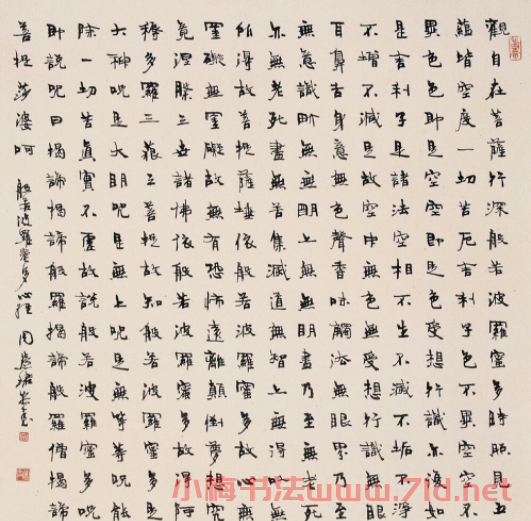 觀自在菩薩行深般若波羅蜜多時照見五
蘊皆空度一切苦厄舍利子色不異空空不
異色色即是空空即是色受想行識亦復如
是舍利子是諸法空相不生不滅不垢不淨
不增不減是故空中無色無受想行識無眼
耳鼻舌身意無色聲香味觸法無眼界乃至
無意識界無無明亦無無明盡乃至無老死
亦無老死盡無苦集滅道無智亦無得以無
所得故菩提薩埵依般若波羅蜜多故心無
罣礙無罣礙故無有恐怖遠離顛倒夢想究
竟涅槃三世諸佛依般若波羅蜜多故得阿
耨多羅三藐三菩提故知般若波羅蜜多是
大神咒是大明咒是無上咒是無等等咒能
除一切苦真實不虛故說般若波羅蜜多咒
即說咒曰揭諦揭諦般羅揭諦般羅僧揭諦
菩提莎婆呵 般若波羅蜜多心經
小梅书法www.7ld.net